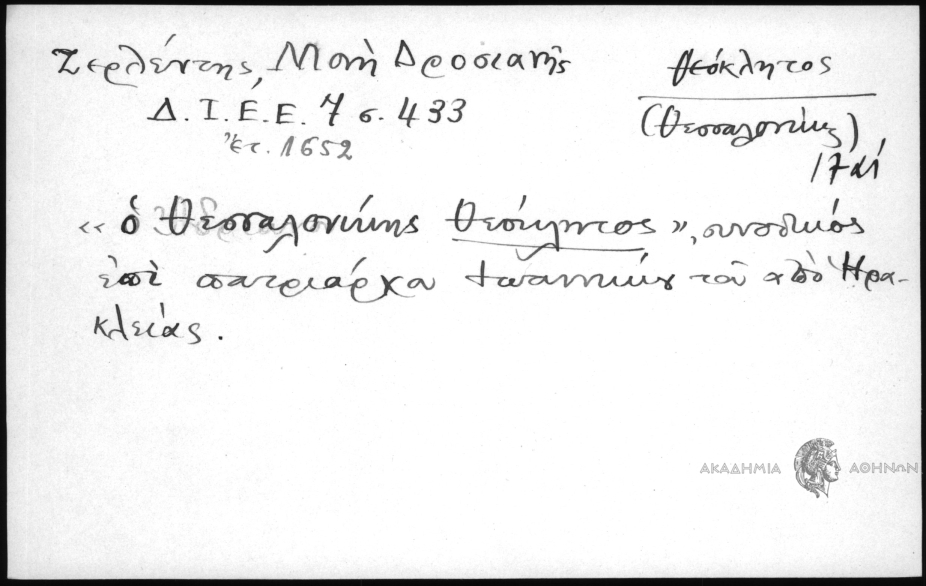 Ζερλέντης, Μονὴ Δροσιανῆς
Δ.Ι.Ε.Ε. 7 σ. 433
ἔτ. 1652
Θεόκλητος
(Θεσσαλονίκης)
17 αἰ
«ὁ Θεσσαλονίκης Θεόκλητος», συνοδικός
ἐπὶ πατριάρχου Ἰωαννικίου τοῦ ἀπὸ Ἡρα-
κλείας.
ΑΚΑΔΗΜΙΑ ΑΘΗΝΩΝ